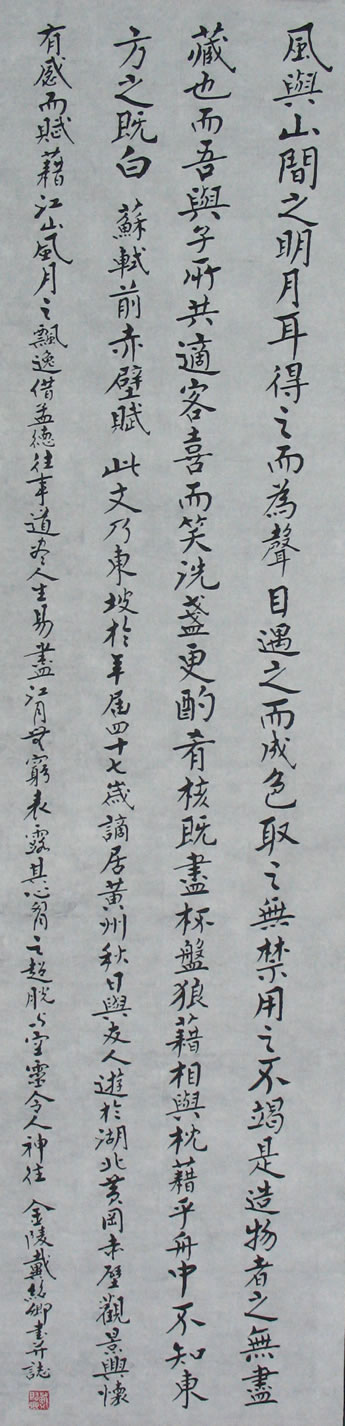 風與山間之明月耳得之而為聲目遇之而成色取之無禁用之不竭是造物者之無盡
藏也而吾與子所共適客喜而笑洗盞更酌肴核既盡杯盤狼藉相與枕藉乎舟中不知東
方之既白 蘇軾前赤壁賦 此文乃東坡於年屆四十七歲謫居黃州秋日與友人遊於湖北黃岡赤壁觀景興懷
有感而賦藉江山風月之飄逸借孟德往事道盡人生易盡江月無窮表露其心胸之超脫與空靈令人神往 金陵戴紹卿書并誌